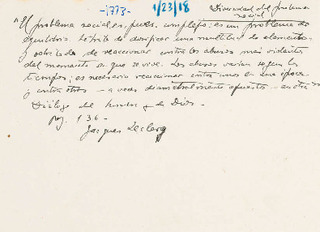 -1773-
1/23/18
Diversidad del problema
social
"El problema social es, pues, complejo; es un problema de
equilibrio. Se trata de dosificar una multitud de elementos
y sobre todo de reaccionar contra los abusos más violentos
del momento en que se vive. Los abusos varían según los
tiempos; es necesario reaccionar contra unos en una época
y contra otros — a veces diametralmente opuestos — en otra
Diálogo del hombre y de Dios.
pág. 136
Jacques Leclercq